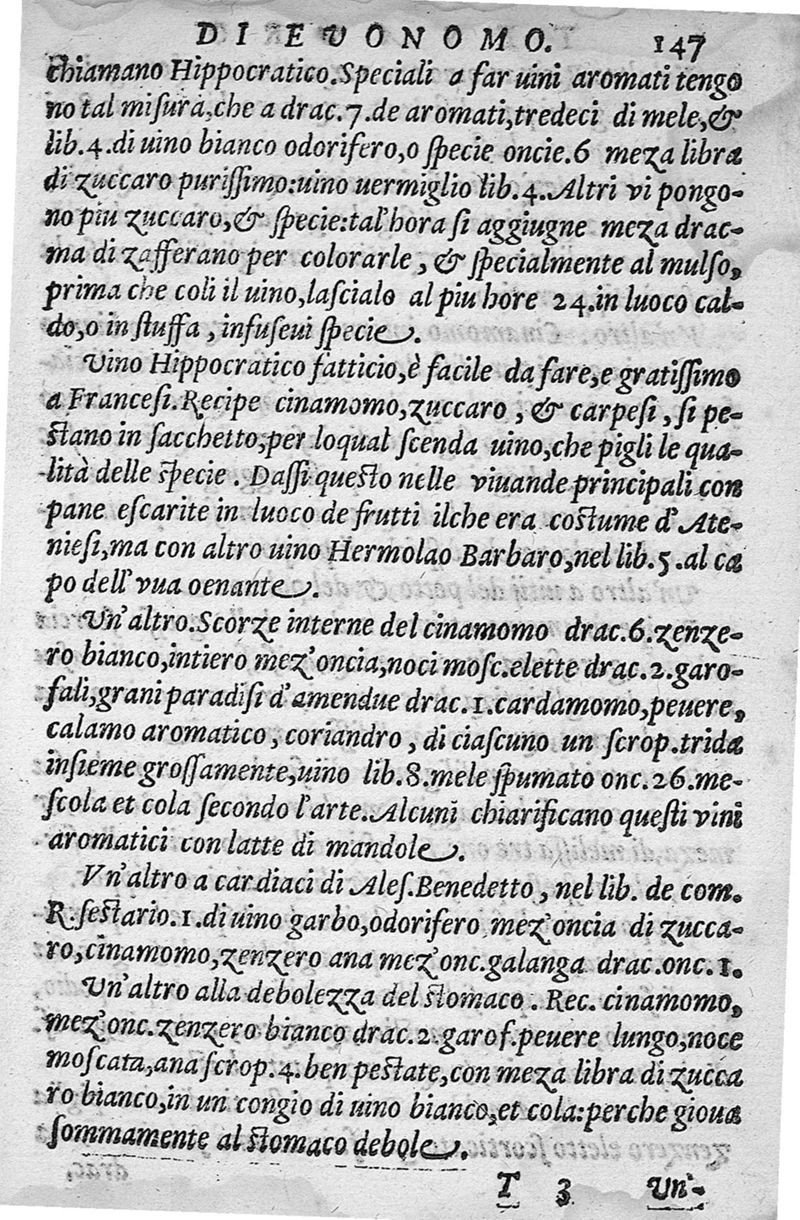 DI EVONOMO. 147
chiamano Hippocratico. Speciali a far uini aromati tengo
no tal misura, che a drac. 7. de aromati, tredeci di mele, &
lib. 4. di uino bianco odorifero, o specie oncie. 6 meza libra
di zuccaro purissimo: uino uermiglio lib. 4. Altri vi pongo-
no piu zuccaro, & specie: tal'hora si aggiugne meza drac-
ma di zafferano per colorarle, & specialmente al mulso,
prima che coli il uino, lascialo al piu hore 24. in luoco cal-
do, o in stuffa, infuseui specie.
Vino Hippocratico fatticio, è facile da fare, e gratissimo
a Francesi. Recipe cinamomo, zuccaro, & carpesi, si pe-
stano in sacchetto, per loqual scenda uino, che pigli le qua-
lità delle specie. Dassi questo nelle viuande principali con
pane escarite in luoco de frutti ilche era costume d'Ate-
niesi, ma con altro uino Hermolao Barbaro, nel lib. 5. al ca
po dell'vua oenante.
Un'altro. Scorze interne del cinamomo drac. 6. zenze-
ro bianco, intiero mez'oncia, noci mosc. elette drac. 2. garo-
fali, grani paradisi d'amendue drac. 1. cardamomo, peuere,
calamo aromatico, coriandro, di ciascuno un scrop. trida
insieme grossamente, uino lib. 8. mele spumato onc. 26. me-
scola et cola secondo l'arte. Alcuni chiarificano questi vini
aromatici con latte di mandole.
Vn'altro a cardiaci di Ales. Benedetto, nel lib. de com.
R. sestario. 1. di uino garbo, odorifero mez'oncia di zucca-
ro, cinamomo, zenzero ana mez'onc. galanga drac. onc. 1.
Un'altro alla debolezza del stomaco. Rec. cinamomo,
mez'onc. zenzero bianco drac. 2. garof. peuere lungo, noce
moscata, ana scrop. 4. ben pestate, con meza libra di zucca
ro bianco, in un congio di uino bianco, et cola: perche gioua
sommamente al stomaco debole.
T 3 Un'-